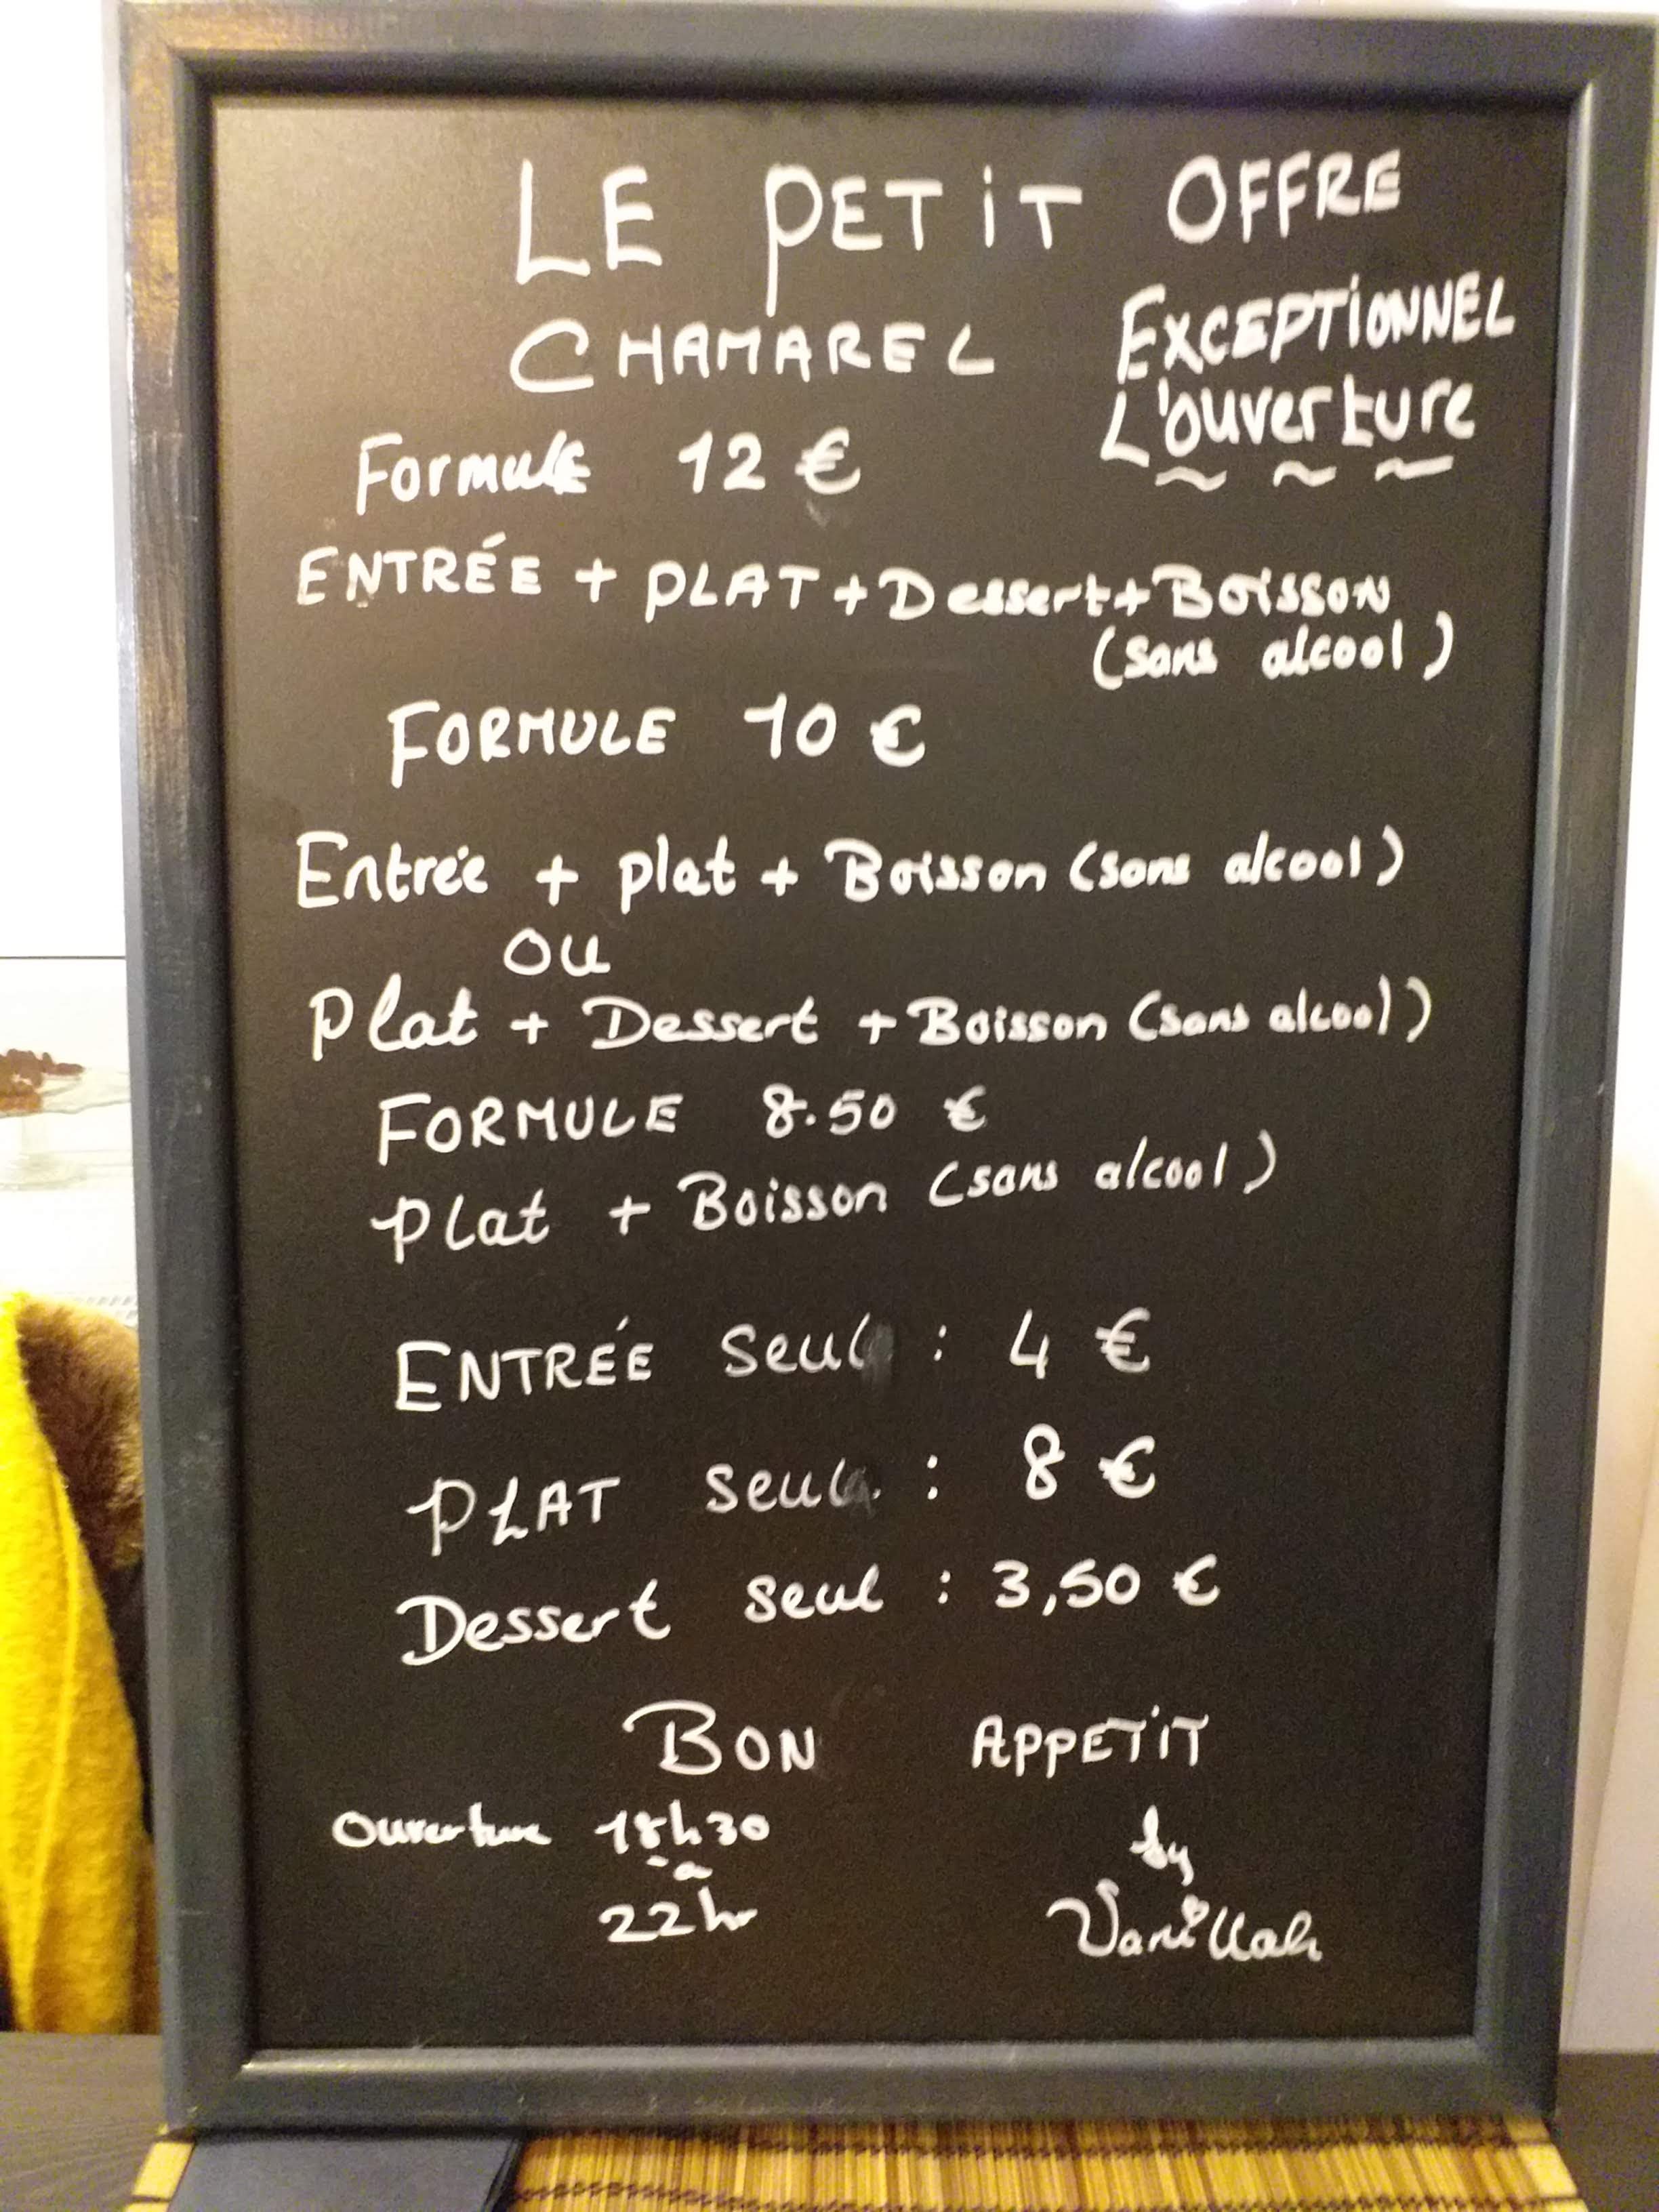 LE PETIT
CHAMAREL
OFFRE
EXCEPTIONNEL
L'ouverture
Formule 12 €
ENTRÉE + PLAT + Dessert + Boisson
(sans alcool)
FORMULE 10 €
Entrée + plat + Boisson (sans alcool)
OU
Plat + Dessert + Boisson (sans alcool)
FORMULE 8.50 €
Plat + Boisson (sans alcool)
ENTRÉE seul : 4 €
PLAT seul : 8 €
Dessert seul : 3,50 €
BON APPETIT
Ouverture 18h30
à
22hr
by
Vanillah